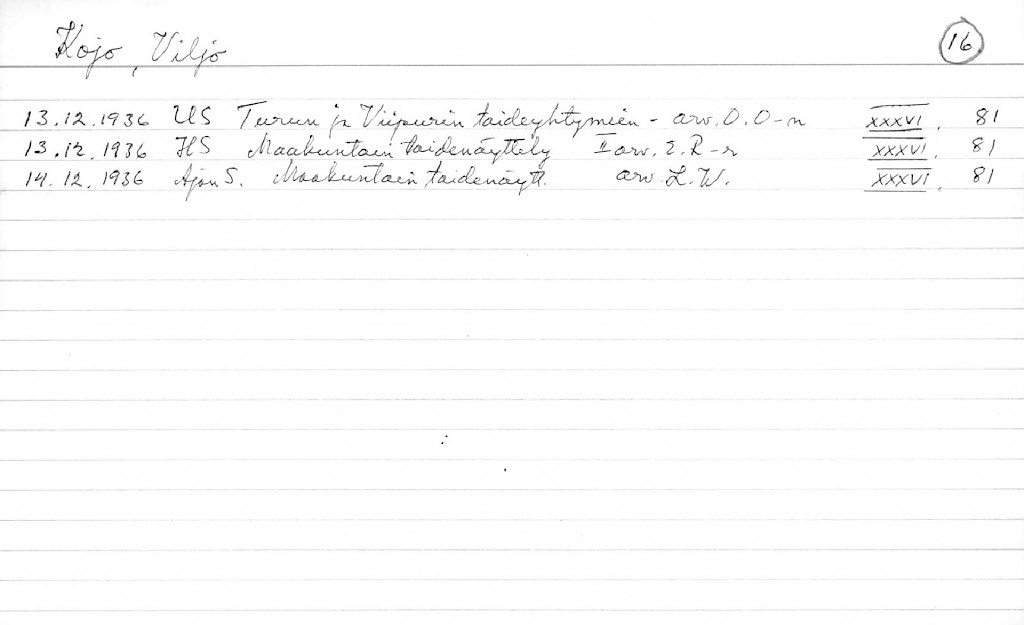 Kojo, Viljo 16
13.12.1936 US Turun ja Viipurin taideyhtymien - arv. O.O-n XXXVI, 81
13.12.1936 HS Maakuntain taidenäyttely I arv. E.R-r XXXVI, 81
14.12.1936 Ajan S. Maakuntain taidenäytt. arv. L.W. XXXVI, 81